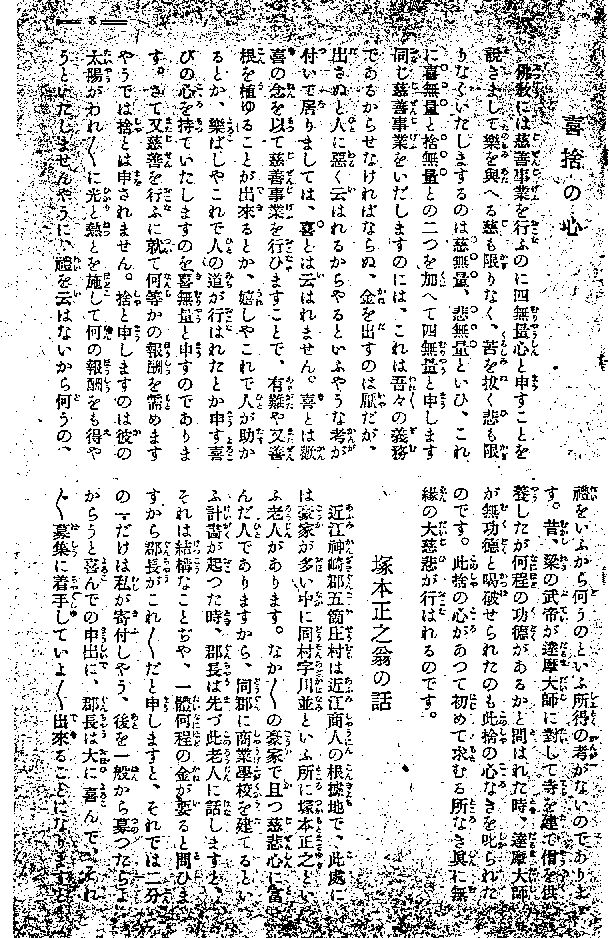 喜捨の心
佛教には慈善事業を行ふのに四無量心と申すことを
説きまして樂を與へる慈も限りなく、苦を拔く悲も限
りなくいたしまするのは慈無量、悲無量といひ、これ
に喜無量と捨無量との二つを加へて四無量と申します
同じ慈善事業をいたしますのには、これは吾々の義務
であるからせなければならぬ、金を出すのは厭だが、
出さぬと人に惡く云はれるからやるといふやうな考が
付いて居りましては、喜とは云はれません。喜とは歡
喜の念を以て慈善事業を行ひますことで、有難や又善
根を植ゆることが出來るとか、嬉しやこれで人が助か
るとか、樂ばしやこれで人の道が行はれたとか申す喜
びの心を持ていたしますのを喜無量と申すのでありま
す。さて又慈善を行ふに就て何等かの報酬を需めます
やうでは捨とは申されません。捨と申しますのは彼の
太陽がわれ〳〵に光と熱とを施して何の報酬をも得や
うといたしませんやうに、禮を云はないから何うの、
禮をいふから何うのといふ所得の考がないのでありま
す。昔、梁の武帝が達摩大師に對して寺を建て僧を供
養したが何程の功德があるかと問はれた時、達摩大師
が無功德と喝破せられたのも此捨の心なきを叱られた
のです。此捨の心があつて初めて求むる所なき眞に無
緣の大慈悲が行はれるのです。
塚本正之翁の話
近江神崎郡五箇庄村は近江商人の根據地で、此處に
は豪家が多い中に同村字川並といふ所に塚本正之とい
ふ老人があります。なか〳〵の豪家で且つ慈悲心に富
んだ人でありますから、同郡に商業學校を建てるとい
ふ計畫が起つた時、郡長は先づ此老人に話しますと、
それは結構なことぢや、一體何程の金が要ると問ひま
すから郡長がこれ〳〵だと申しますと、それでは二分
の一だけは私が寄付しやう、後を一般から募つたらよ
からうと喜んでの申出に、郡長は大に喜んで、それ
〳〵募集に着手していよ〳〵出來ることになりますと